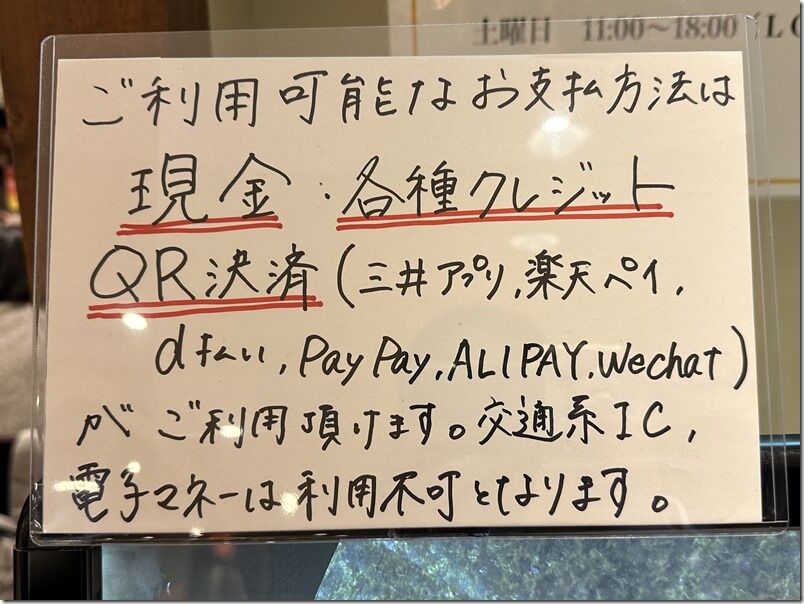 土曜日 11:00～18:00 (L
ご利用可能なお支払方法は
現金・各種クレジット
QR決済(三井アプリ,楽天ペイ,
d払い,PayPay,ALIPAY,Wechat)
がご利用頂けます。交通系IC,
電子マネーは利用不可となります。